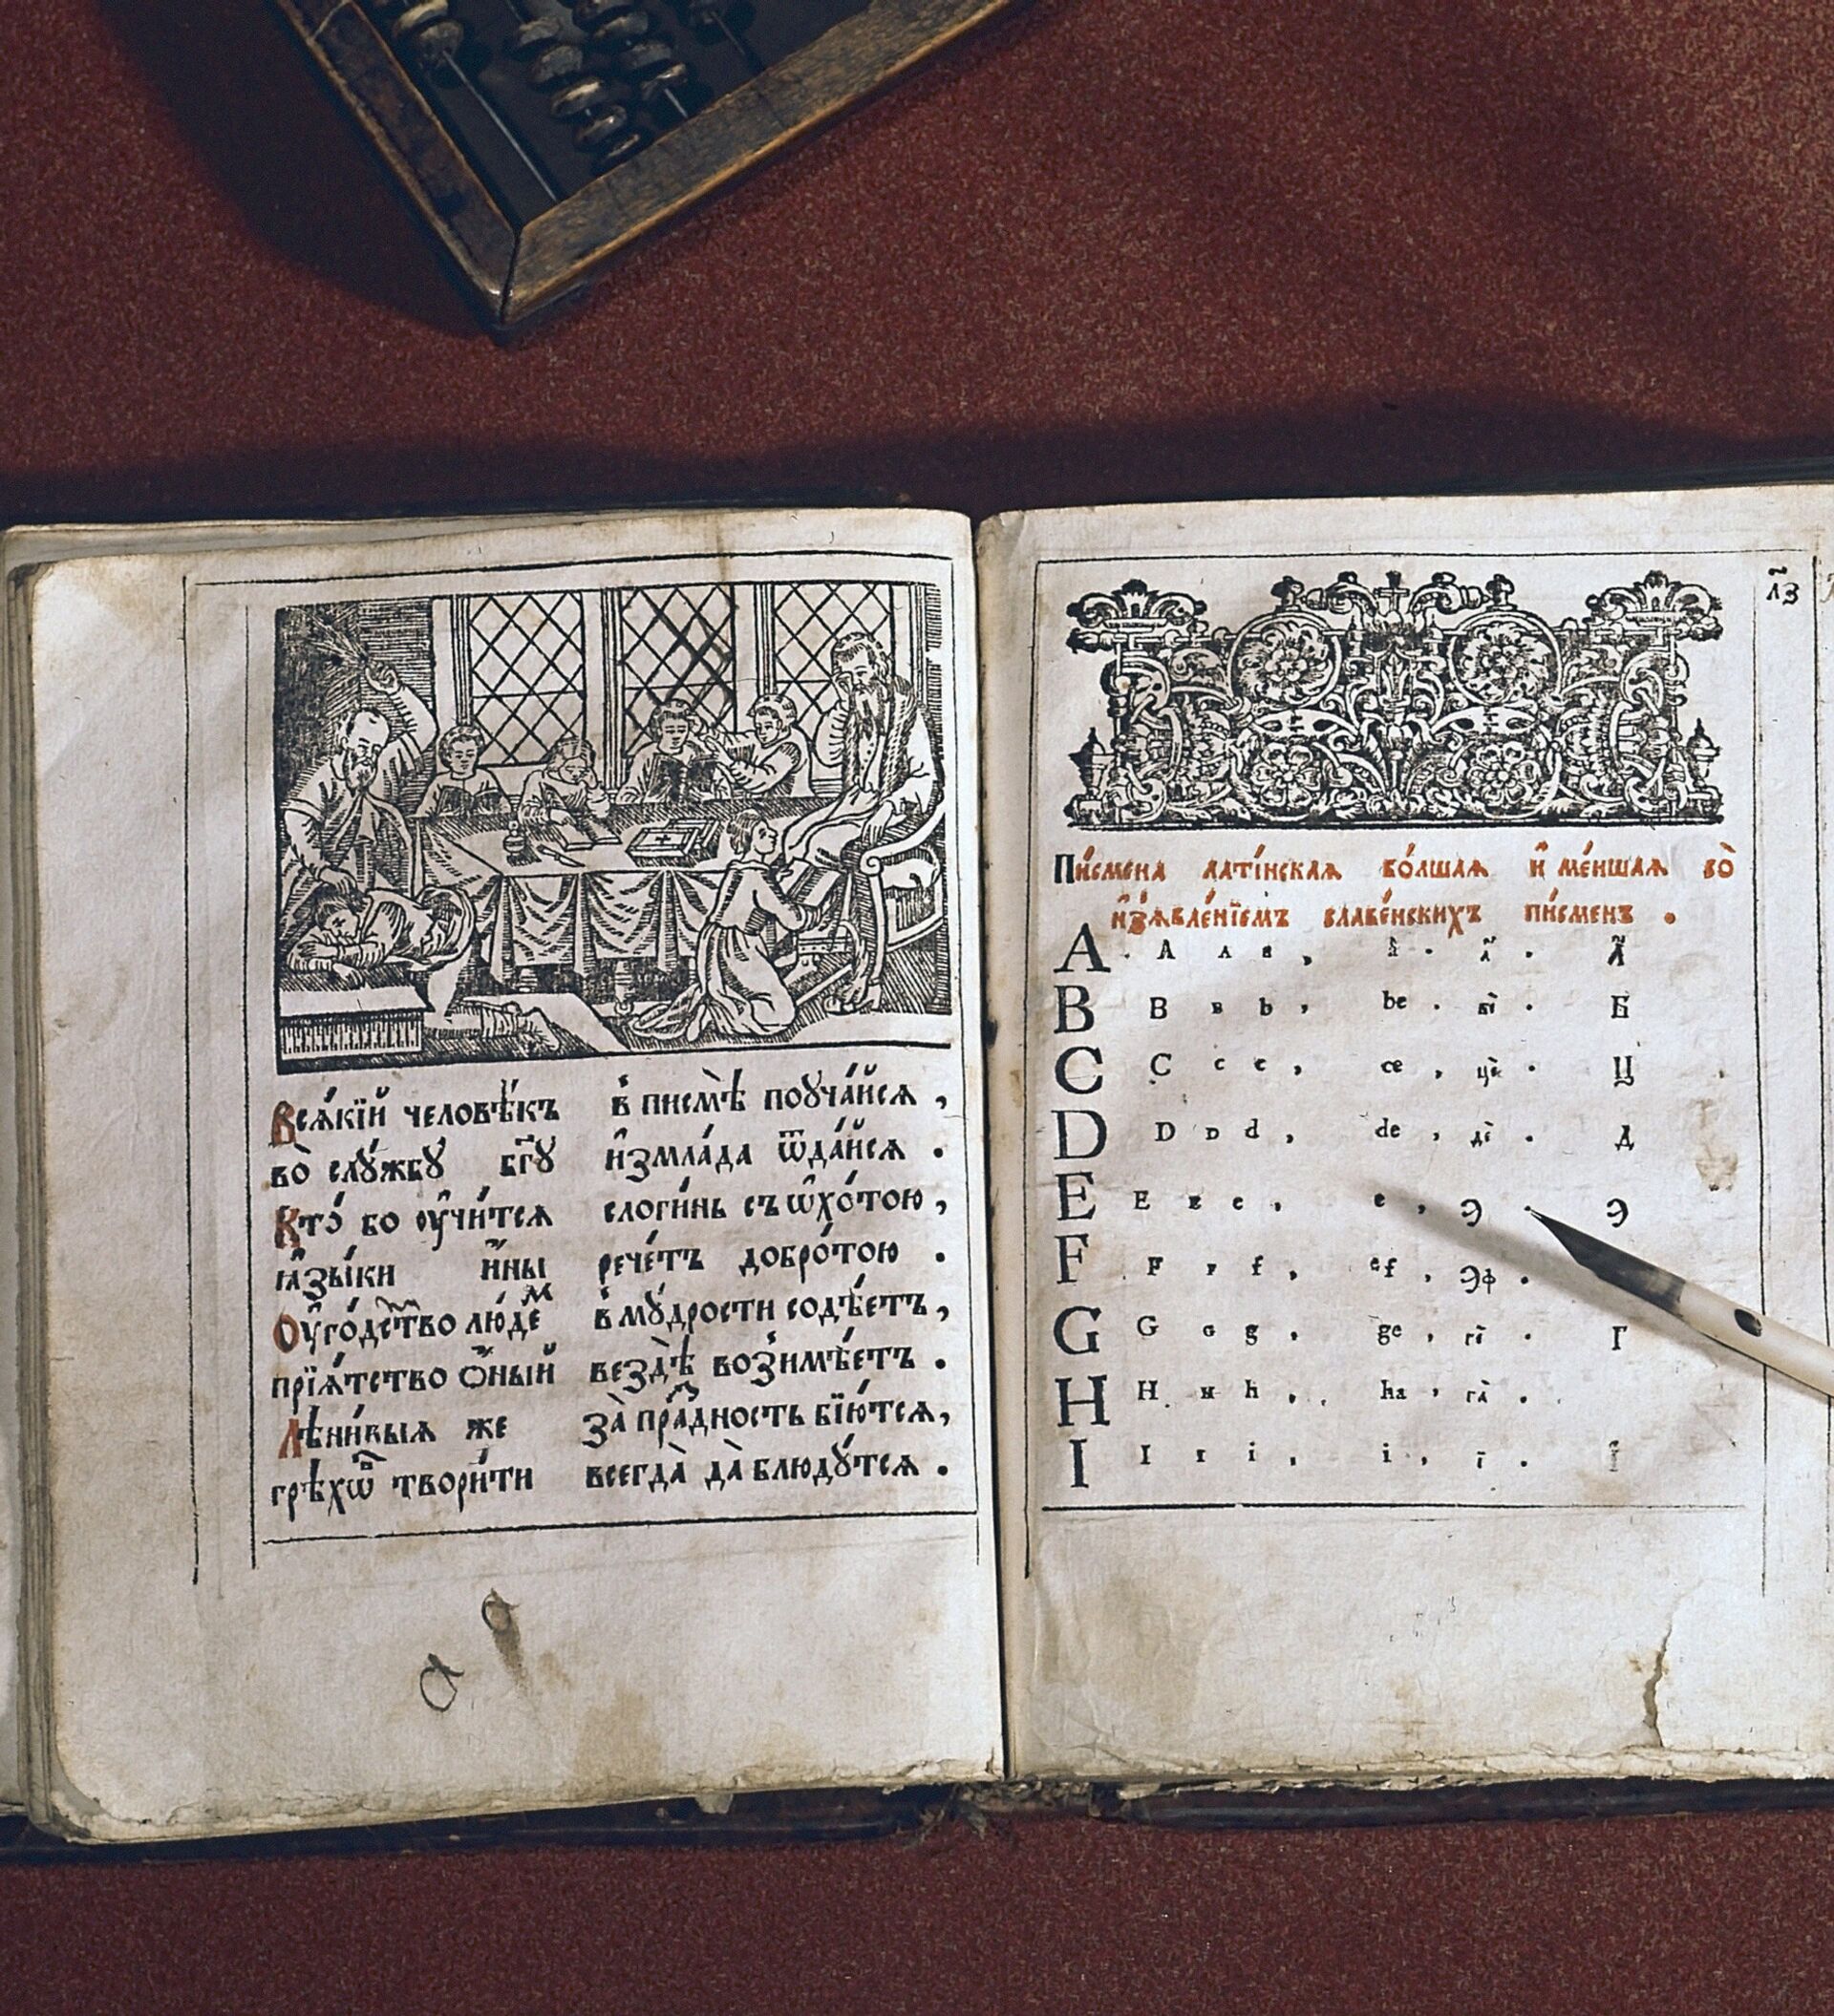 Всѧ́кїй человѣ́къ в писмѣ̀ поꙋча́йсѧ ,
во̀ слꙋ́жбꙋ бг҃ꙋ и҆змла́да ѿда́йсѧ .
Кто́ бо ᲂу҆чи́тсѧ слоги́нь съ ѡ҆хо́тою ,
ꙗ҆зы́ки и҆́ны рече́тъ добро́тою .
Оу҆го́дство лю́деⷨ в мꙋ́дрости содѣ́етъ ,
прїѧ́тство ѻ҆́ный вездѣ̀ возъимѣ́етъ .
Лѣни́выѧ же за̀ пра́здность бїю́тсѧ ,
грѣхѡ́въ твори́ти всегда̀ да̀ блюдꙋ́тсѧ .
л҃з
Пи́смена лати́нскаѧ бо́лшаѧ и҆ ме́ншаѧ во̀
и҆з̾ѧвле́нїемъ славе́нскихъ пи́сменъ .
A . A ᴀ a , a . а҆ . А҆
B B ʙ b , be . бѐ . Б
C C c c , ce , цѐ . Ц
D D ᴅ d , de , дѐ . Д
E E ᴇ e , e , э . Э
F F ꜰ f , ef , эф .
G G ɢ g , ge , гѐ . Г
H H ʜ h , ha , га̀ .
I I ɪ i , i , ї . Ї
a
a